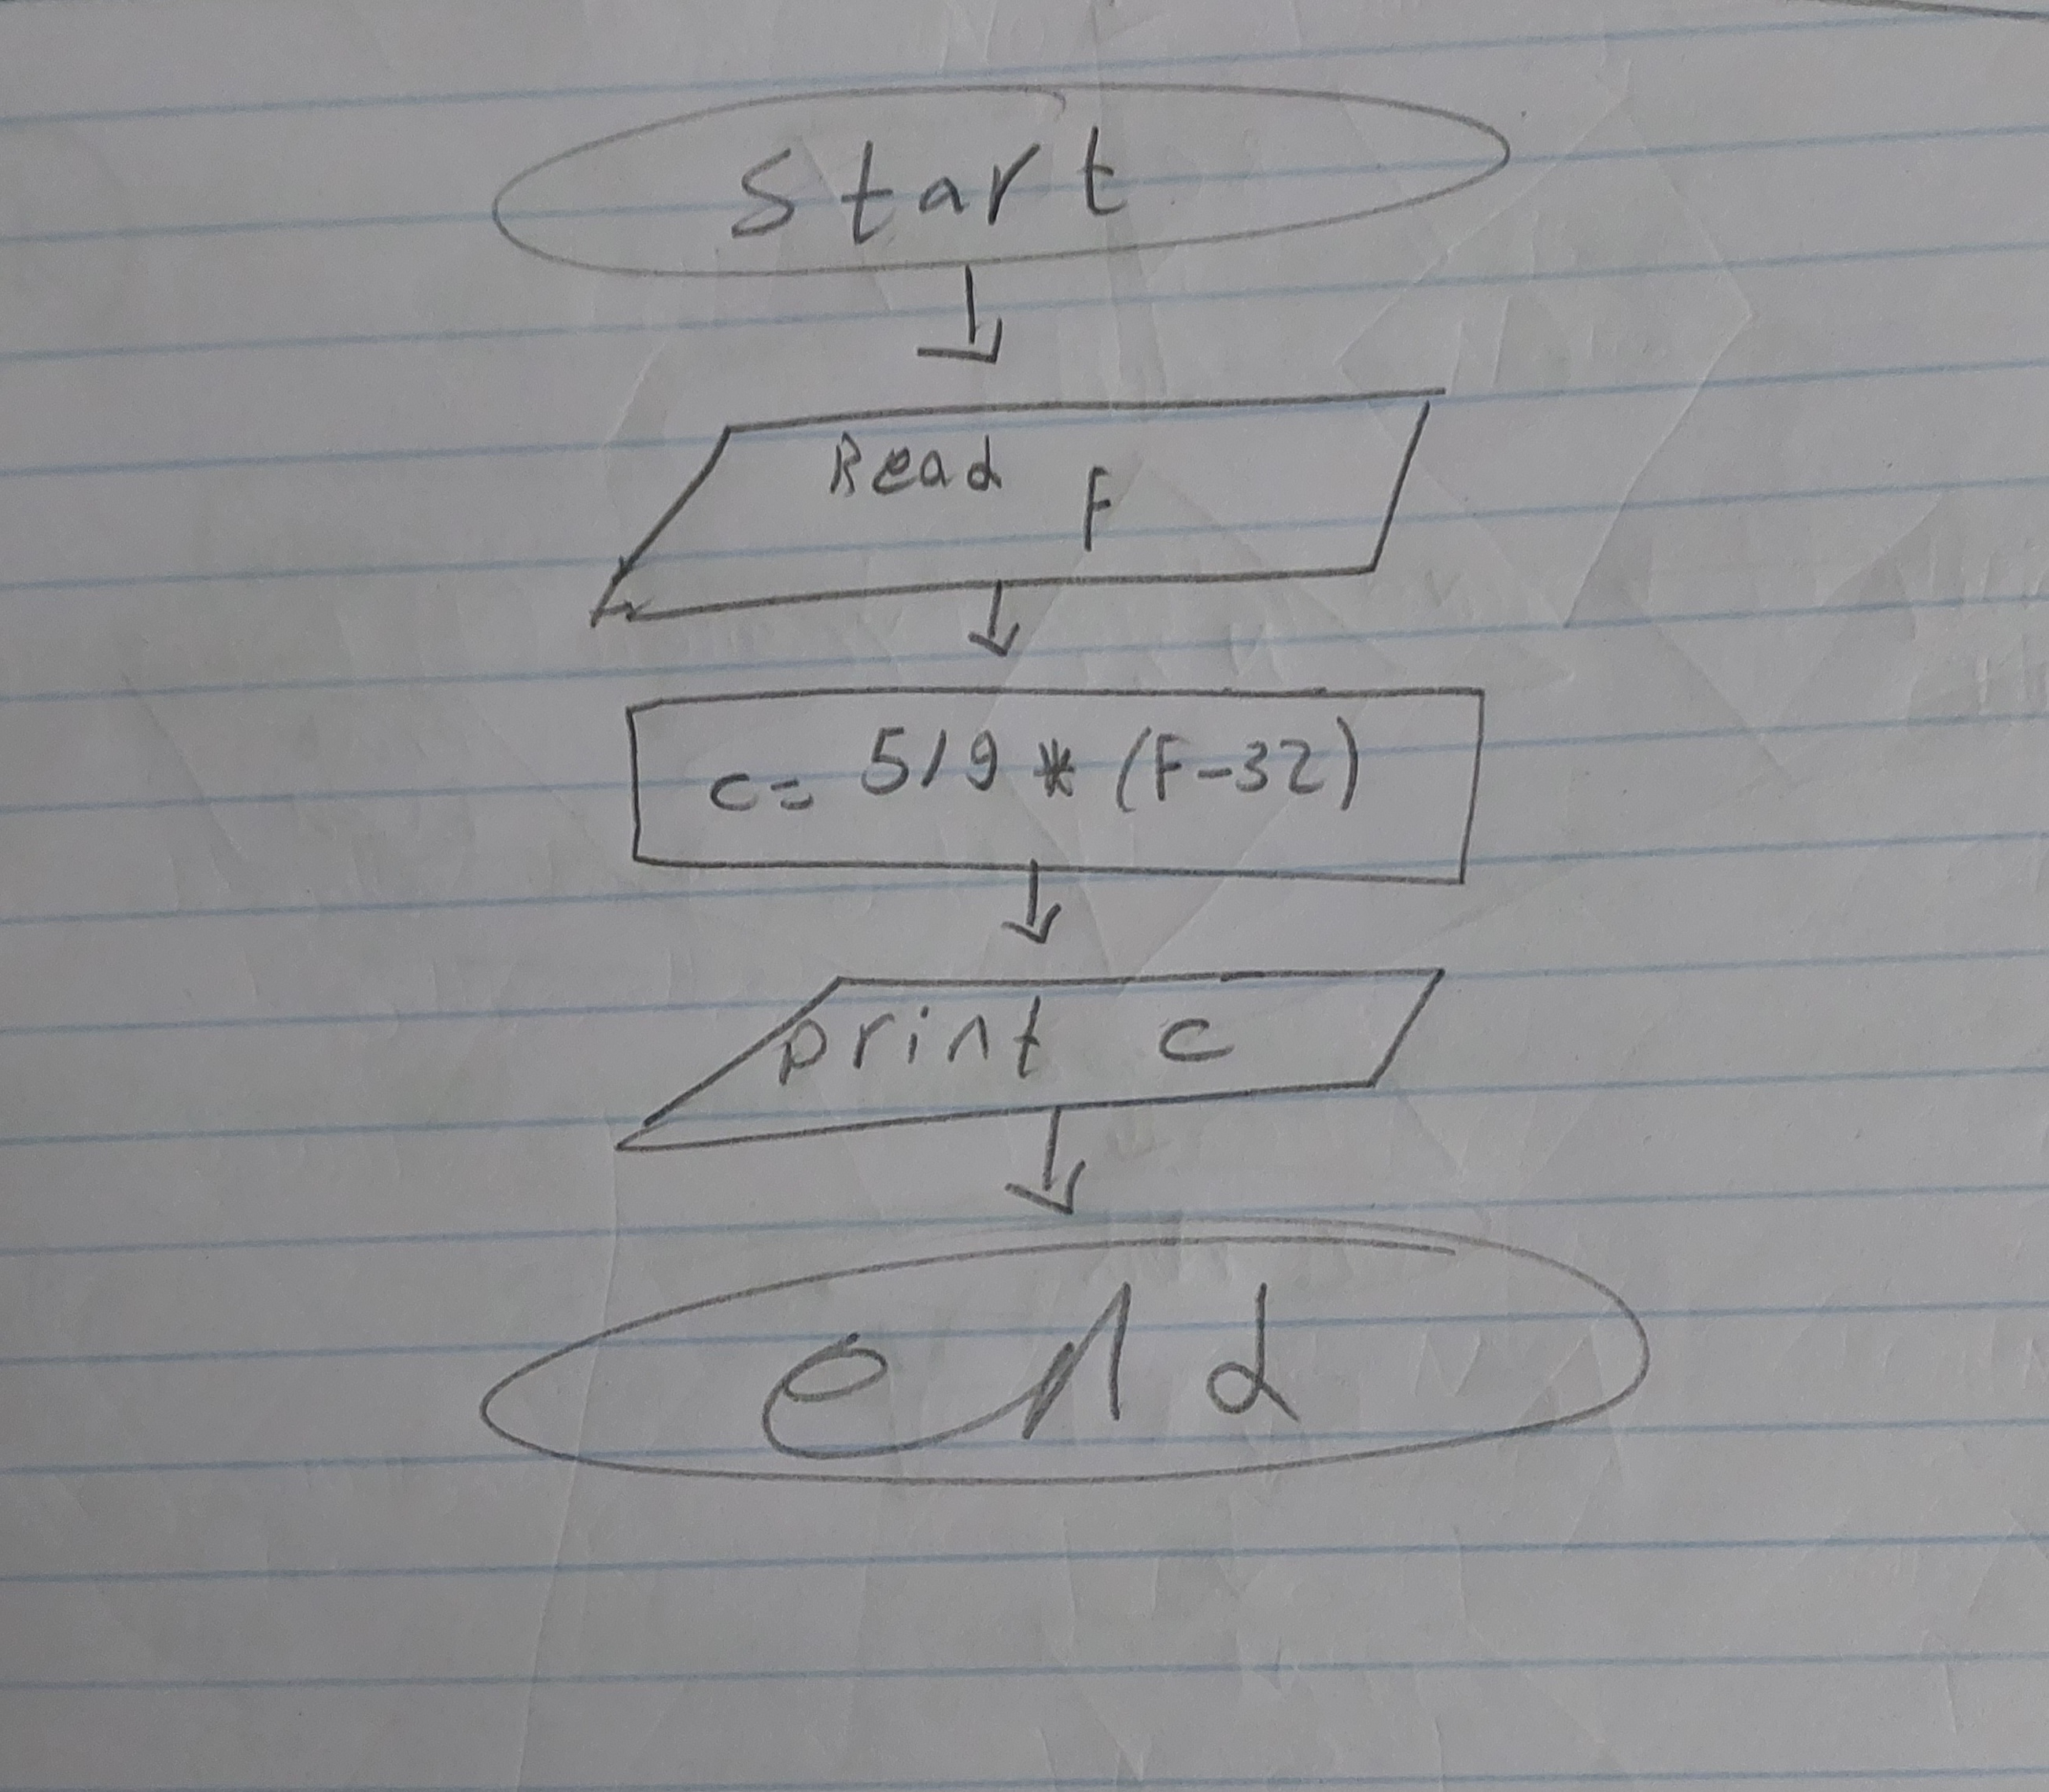 Start
Read F
c= 5/9 * (F-32)
print c
end